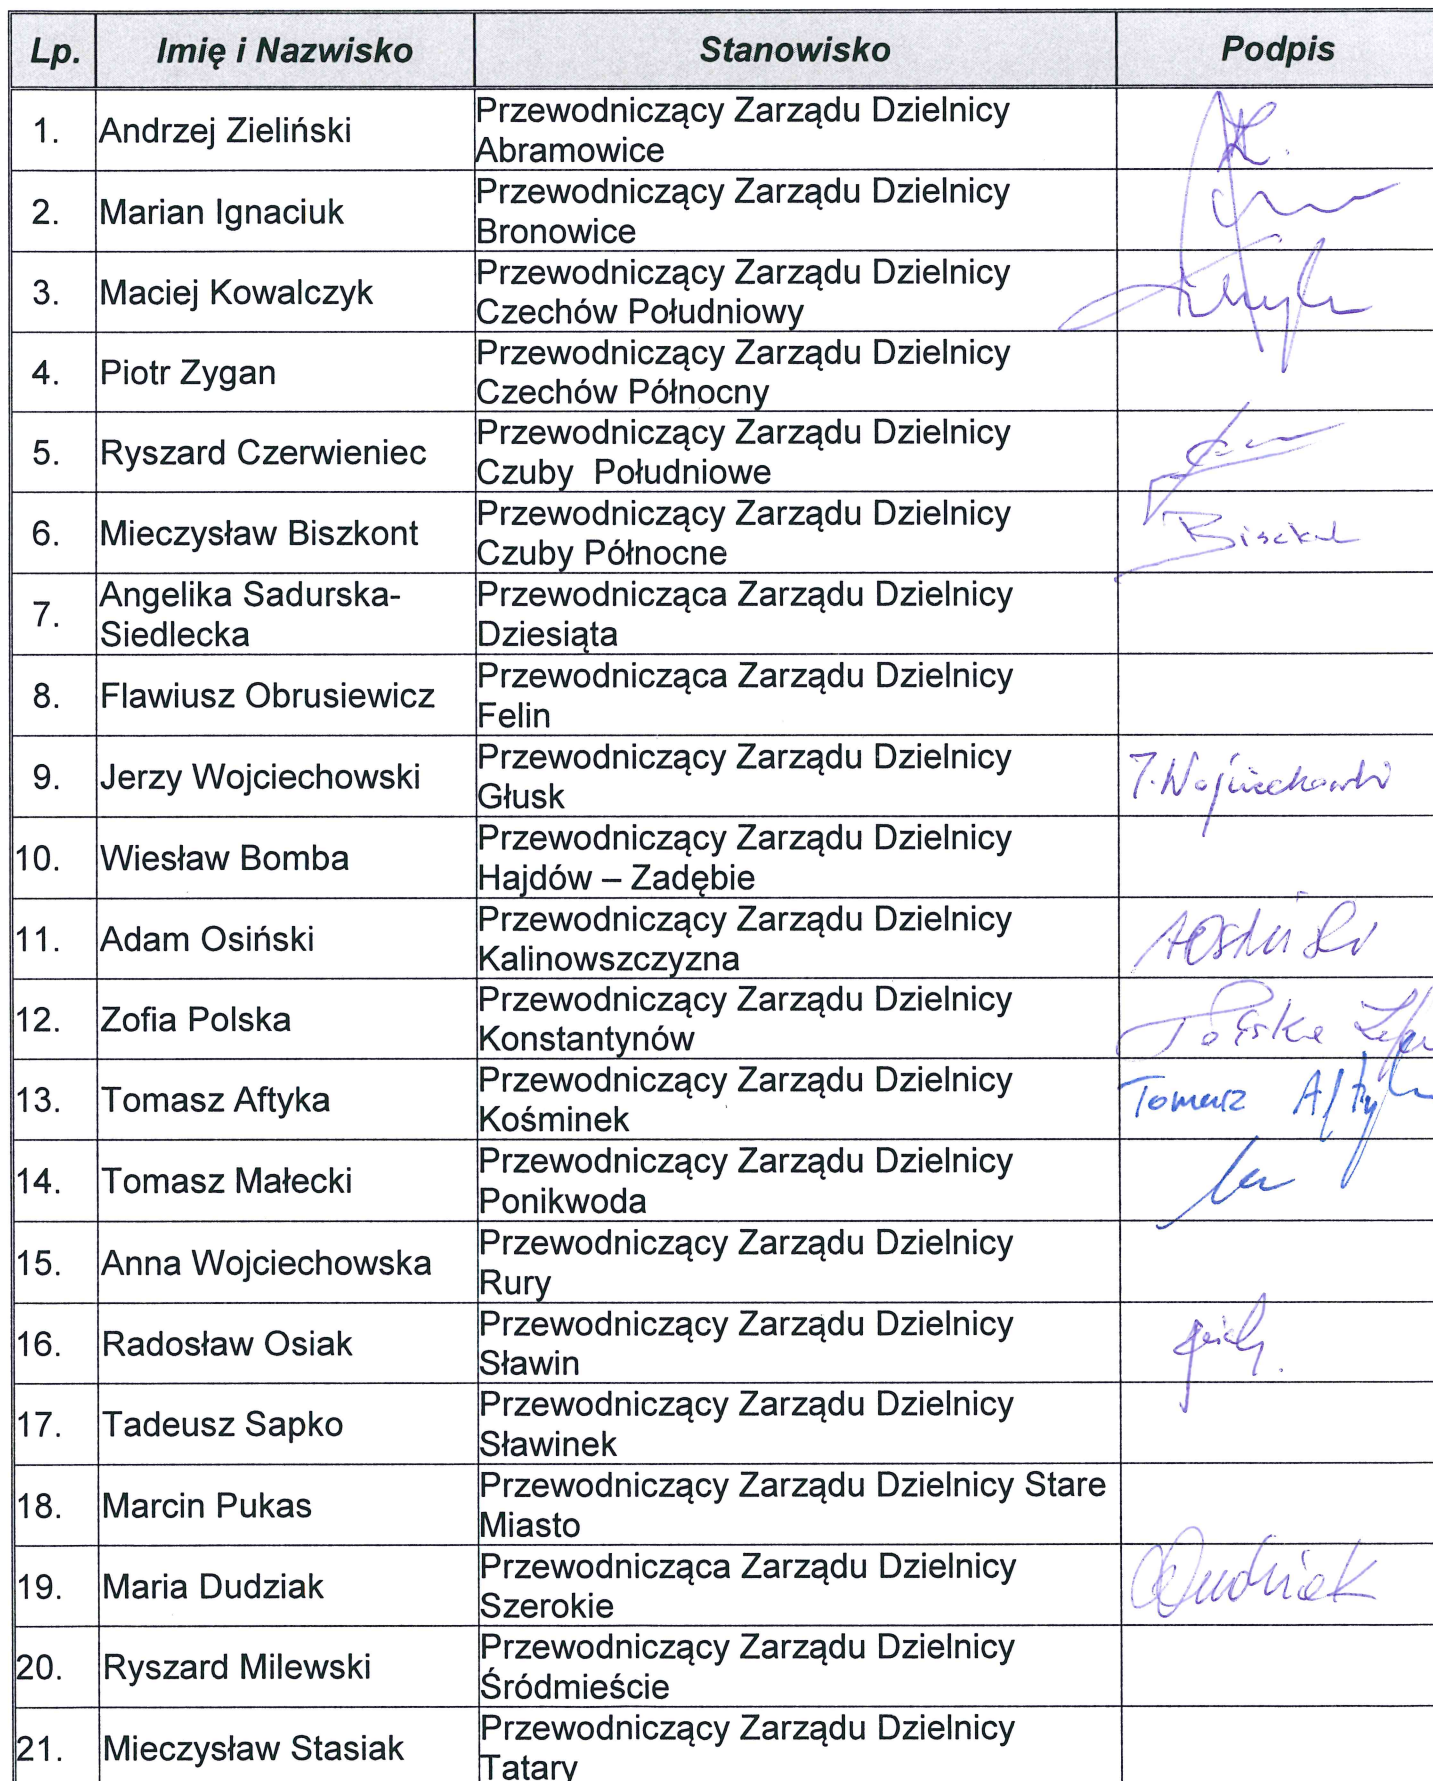 Lp. Imię i Nazwisko Stanowisko Podpis
1. Andrzej Zieliński Przewodniczący Zarządu Dzielnicy
Abramowice
2. Marian Ignaciuk Przewodniczący Zarządu Dzielnicy
Bronowice
3. Maciej Kowalczyk Przewodniczący Zarządu Dzielnicy
Czechów Południowy
4. Piotr Zygan Przewodniczący Zarządu Dzielnicy
Czechów Północny
5. Ryszard Czerwieniec Przewodniczący Zarządu Dzielnicy
Czuby Południowe
6. Mieczysław Biszkont Przewodniczący Zarządu Dzielnicy
Czuby Północne
7. Angelika Sadurska- Przewodnicząca Zarządu Dzielnicy
Siedlecka Dziesiąta
8. Flawiusz Obrusiewicz Przewodnicząca Zarządu Dzielnicy
Felin
9. Jerzy Wojciechowski Przewodniczący Zarządu Dzielnicy J. Wojciechowski
Głusk
10. Wiesław Bomba Przewodniczący Zarządu Dzielnicy
Hajdów – Zadębie
11. Adam Osiński Przewodniczący Zarządu Dzielnicy AOsiński
Kalinowszczyzna
12. Zofia Polska Przewodniczący Zarządu Dzielnicy Polska
Konstantynów
13. Tomasz Aftyka Przewodniczący Zarządu Dzielnicy Tomasz Aftyka
Kośminek
14. Tomasz Małecki Przewodniczący Zarządu Dzielnicy
Ponikwoda
15. Anna Wojciechowska Przewodniczący Zarządu Dzielnicy
Rury
16. Radosław Osiak Przewodniczący Zarządu Dzielnicy
Sławin
17. Tadeusz Sapko Przewodniczący Zarządu Dzielnicy
Sławinek
18. Marcin Pukas Przewodniczący Zarządu Dzielnicy Stare
Miasto
19. Maria Dudziak Przewodnicząca Zarządu Dzielnicy Dudziak
Szerokie
20. Ryszard Milewski Przewodniczący Zarządu Dzielnicy
Śródmieście
21. Mieczysław Stasiak Przewodniczący Zarządu Dzielnicy
Tatary